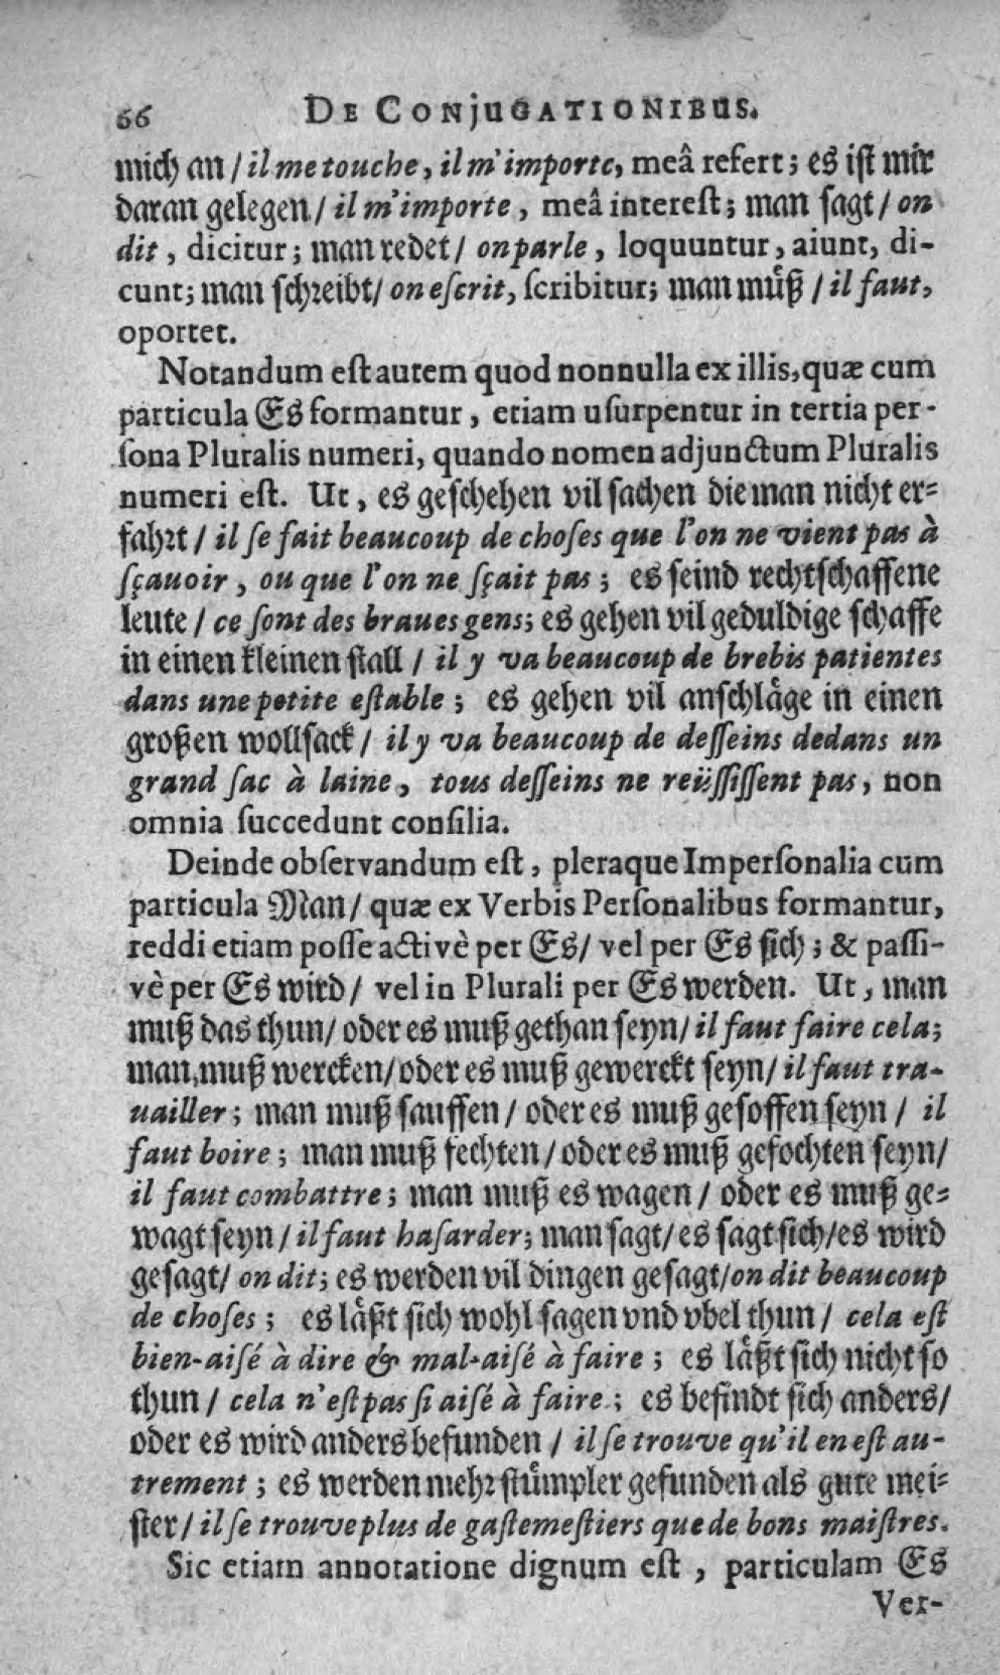 66 DE CONJUGATIONIBUS.
mich an / il me touche, il m'importe, meâ refert; es iſt mir
daran gelegen / il m'importe, meâ intereſt; man ſagt / on
dit, dicitur; man redet / on parle, loquuntur, aiunt, di-
cunt; man ſchreibt / on eſcrit, ſcribitur; man muͤß / il faut,
oportet.
Notandum eſt autem quod nonnulla ex illis, quæ cum
particula Es formantur, etiam uſurpentur in tertia per-
ſona Pluralis numeri, quando nomen adjunctum Pluralis
numeri eſt. Ut, es geſchehen vil ſachen die man nicht er-
fahrt / il ſe fait beaucoup de choſes que l'on ne vient pas à
ſçauoir, ou que l'on ne ſçait pas; es ſeind rechtſchaffene
leute / ce ſont des braues gens; es gehen vil geduldige ſchaffe
in einen kleinen ſtall / il y va beaucoup de brebis patientes
dans une petite eſtable; es gehen vil anſchlaͤge in einen
großen wollſack / il y va beaucoup de deſſeins dedans un
grand ſac à laine, tous deſſeins ne reüſſiſſent pas, non
omnia ſuccedunt conſilia.
Deinde obſervandum eſt, pleraque Imperſonalia cum
particula Man / quæ ex Verbis Perſonalibus formantur,
reddi etiam poſſe activè per Es / vel per Es ſich; & paſſi-
vè per Es wird / vel in Plurali per Es werden. Ut, man
muß das thun / oder es muß gethan ſeyn / il faut faire cela;
man muß wercken / oder es muß gewerckt ſeyn / il faut tra-
uailler; man muß ſauffen / oder es muß geſoffen ſeyn / il
faut boire; man muß fechten / oder es muß gefochten ſeyn /
il faut combattre; man muß es wagen / oder es muß ge-
wagt ſeyn / il faut haſarder; man ſagt / es ſagt ſich / es wird
geſagt / on dit; es werden vil dingen geſagt / on dit beaucoup
de choſes; es laͤßt ſich wohl ſagen vnd vbel thun / cela eſt
bien-aiſé à dire & mal-aiſé à faire; es laͤßt ſich nicht ſo
thun / cela n'eſt pas ſi aiſé à faire; es befindt ſich anders /
oder es wird anders befunden / il ſe trouve qu'il en eſt au-
trement; es werden mehr ſtuͤmpler gefunden als gute mei-
ſter / il ſe trouve plus de gaſtemeſtiers que de bons maiſtres.
Sic etiam annotatione dignum eſt, particulam Es
Ver-